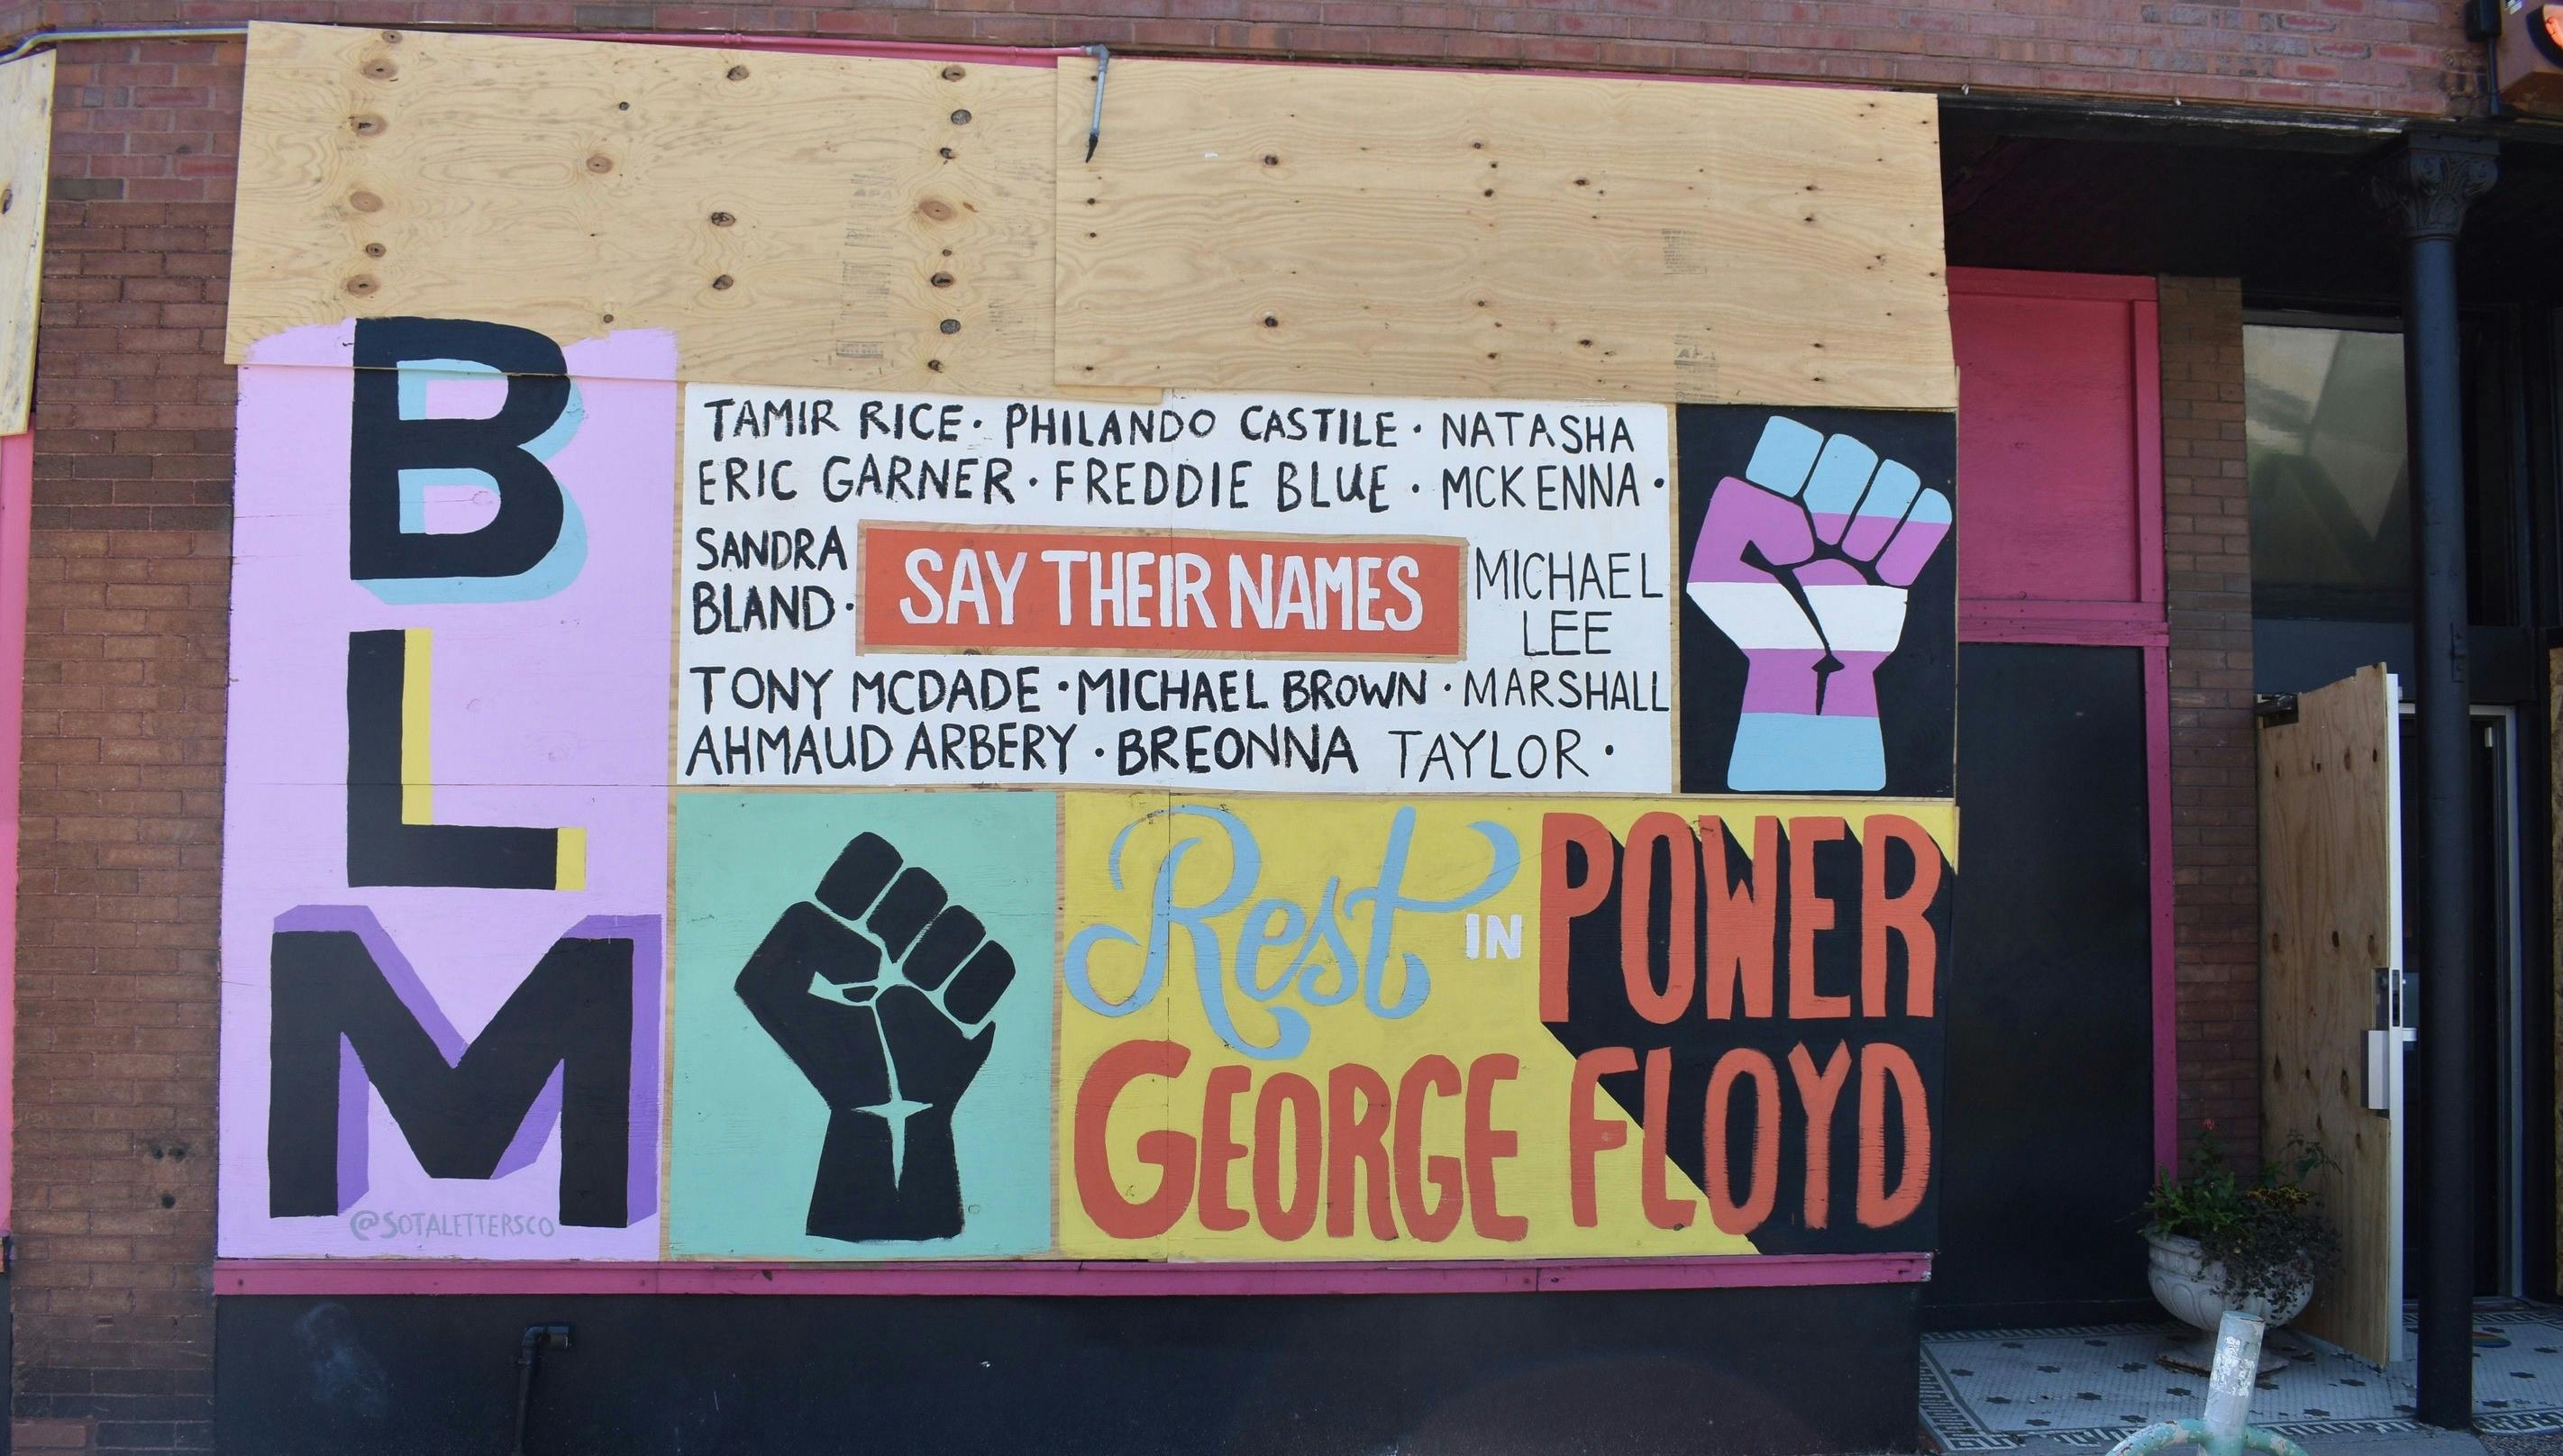 B
L
M
@SOTALETTERSCO
TAMIR RICE · PHILANDO CASTILE · NATASHA
ERIC GARNER · FREDDIE BLUE · MCKENNA ·
SANDRA
BLAND ·
SAY THEIR NAMES
MICHAEL
LEE
TONY MCDADE · MICHAEL BROWN · MARSHALL
AHMAUD ARBERY · BREONNA TAYLOR ·
Rest IN POWER
GEORGE FLOYD